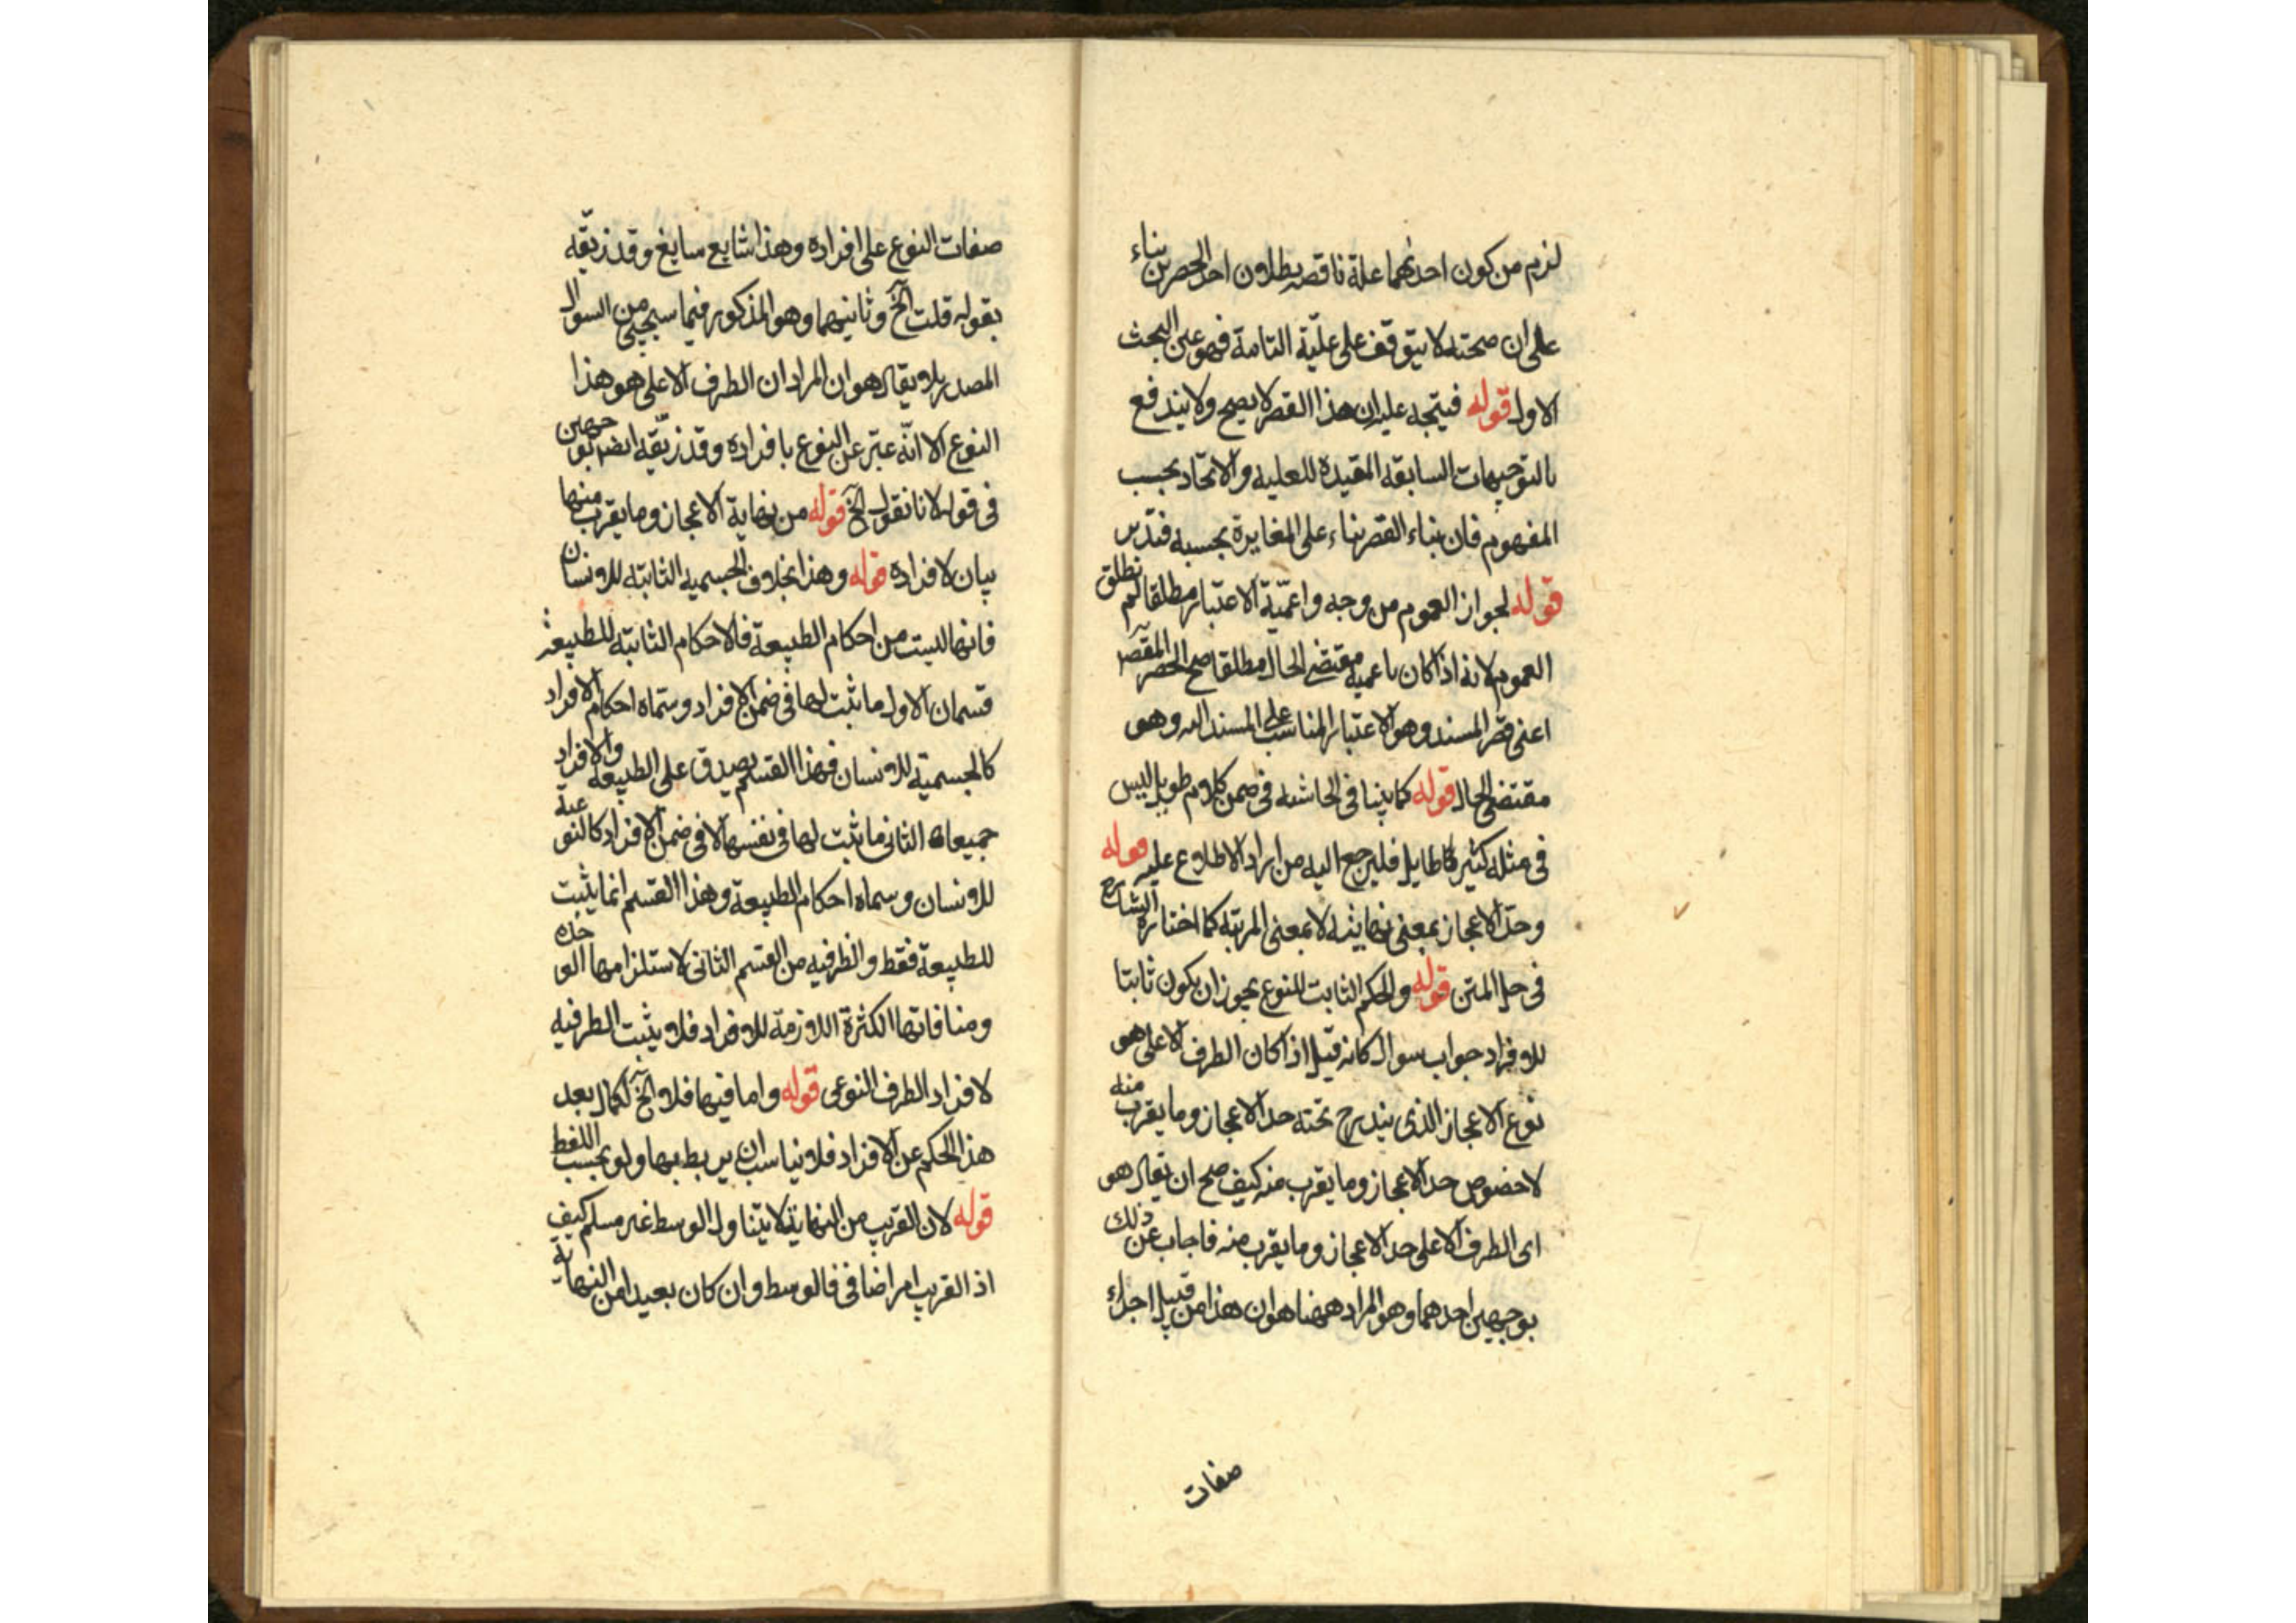 لزم من كون احدهما علة ناقصة بطلان احد الحصرين بناء
على ان صحته لا يتوقف على علية التامة فهو عين البحث
الاول قوله فيتجه عليه ان هذا القصر لا يصح ولا يندفع
بالتوجيهات السابقة المقيدة للعلية والاتحاد بحسب
المفهوم فان بناء القصر بناء على المغايرة بحسبه فتدبر
قوله لجواز العموم من وجه واعمية الاعتبار مطلقا لم نطلق
العموم لانه اذا كان باعمية مقتضى الحال مطلقا صح الحصر المقصر
اعنى قصر المسند وهو الاعتبار المناسب على المسند اليه وهو
مقتضى الحال قوله كما بينا فى الحاشية فى ضمن كلام طويل ليس
فى مثله كثير طايل فليرجع اليه من اراد الاطلاع عليه قوله
وحد الاعجاز بمعنى نهايته لا بمعنى المرتبة كما اختاره الشارح
فى حل المتن قوله والحكم الثابت للنوع يجوز ان يكون ثابتا
للافراد جواب سوال كانه قيل اذا كان الطرف الاعلى هو
نوع الاعجاز الذى يندرج تحته حد الاعجاز وما يقرب منه
لا خصوص حد الاعجاز وما يقرب منه كيف صح ان يقال هو
اى الطرف الاعلى حد الاعجاز وما يقرب منه فاجاب عن ذلك
بوجهين احدهما وهو المراد ههنا هو ان هذا من قبيل اجراء
صفات
صفات النوع على افراده وهذا شايع سايغ وقد زيفه
بقوله قلت الخ وثانيهما وهو المذكور فيما سيجيئ من السوال
المصدر بلا يقال هو ان المراد ان الطرف الاعلى هو هذا
النوع الا انه عبر عن النوع بافراده وقد زيفه ايضا بوجهين
فى قوله لانا نقول الخ قوله من نهاية الاعجاز وما يقرب منها
بيان لافراده قوله وهذا بخلاف الجسمية الثابتة للانسان
فانها ليست من احكام الطبيعة فالاحكام الثابتة للطبيعة
قسمان الاول ما يثبت لها فى ضمن الافراد وسماه احكام الافراد
كالجسمية للانسان فهذا القسم يصدق على الطبيعة والافراد
جميعا الثانى ما يثبت لها فى نفسها لا فى ضمن الافراد كالنوعية
للانسان وسماه احكام الطبيعة وهذا القسم انما يثبت
للطبيعة فقط والظرفية من القسم الثانى لاستلزامها الوحدة
ومنافاتها الكثرة اللازمة للافراد فلا يثبت الطرفية
لافراد الطرف النوعى قوله واما فيهما فلا الخ لكمال بعد
هذا الحكم عن الافراد فلا يناسب ان يربط بها ولو بحسب اللفظ
قوله لان القريب من النهاية لا يتناول الوسط غير مسلم كيف
اذ القريب امر اضافى فالوسط وان كان بعيدا من النهاية